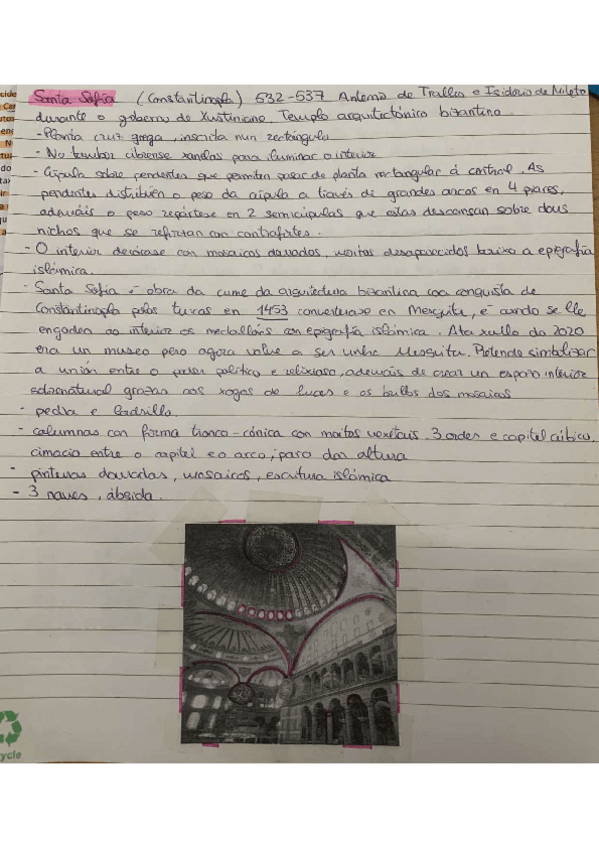 Santa Sofía (Constantinopla) 532-537 Antemio de Tralles e Isidoro de Mileto
durante o goberno de Xustiniano. Templo arquitectónico bizantino
- Planta cruz grega, inscrita nun rectángulo
- No tambor ábrense xanelas para iluminar o interior
- Cúpula sobre pendentes que permiten pasar de planta rectangular á central. As
pendentes distribúen o peso da cúpula a través de grandes arcos en 4 piares,
ademáis o peso repártese en 2 semicúpulas que estas descansan sobre dous
nichos que se reforzan con contrafortes.
- O interior decórase con mosaicos dourados, moitos desaparecidos baixo a epigrafía
islámica.
- Santa Sofía é obra da cume da arquitectura bizantina coa conquista de
Constantinopla polos turcos en 1453 converteuse en Mesquita, é cando se lle
engaden ao interior os medallóns con epigrafía islámica. Ata xullo do 2020
era un museo pero agora volve a ser unha Mesquita. Pretende simbolizar
a unión entre o poder político e relixioso, ademáis de crear un espazo interior
sobrenatural grazas aos xogos de luces e os brillos dos mosaicos
- pedra e ladrillo.
- columnas con forma tronco-cónica con motivos vexetais. 3 ordes e capitel cúbico.
cimacio entre o capitel e o arco, para dar altura
- pinturas douradas, mosaicos, escritura islámica
- 3 naves, ábsida.
ycle